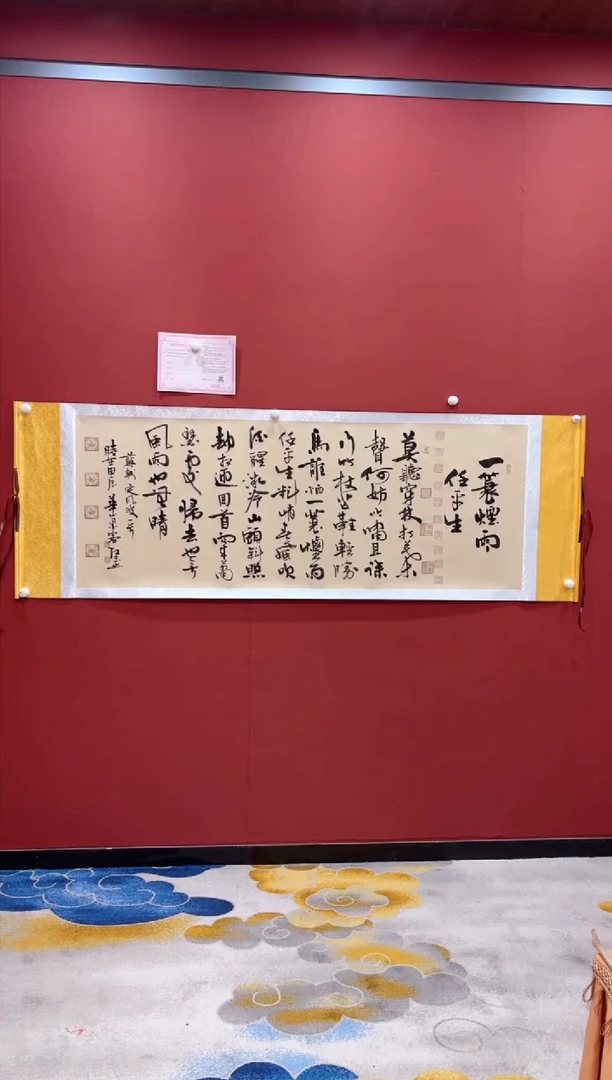 一蓑煙雨
任平生
莫聽穿林打葉
聲何妨吟嘯且徐
行竹杖芒鞋輕勝
馬誰怕一蓑煙雨
任平生料峭春風吹
酒醒微冷山頭斜照
却相迎回首向來蕭
瑟處歸去也無
風雨也無晴
蘇軾定風波
甲辰